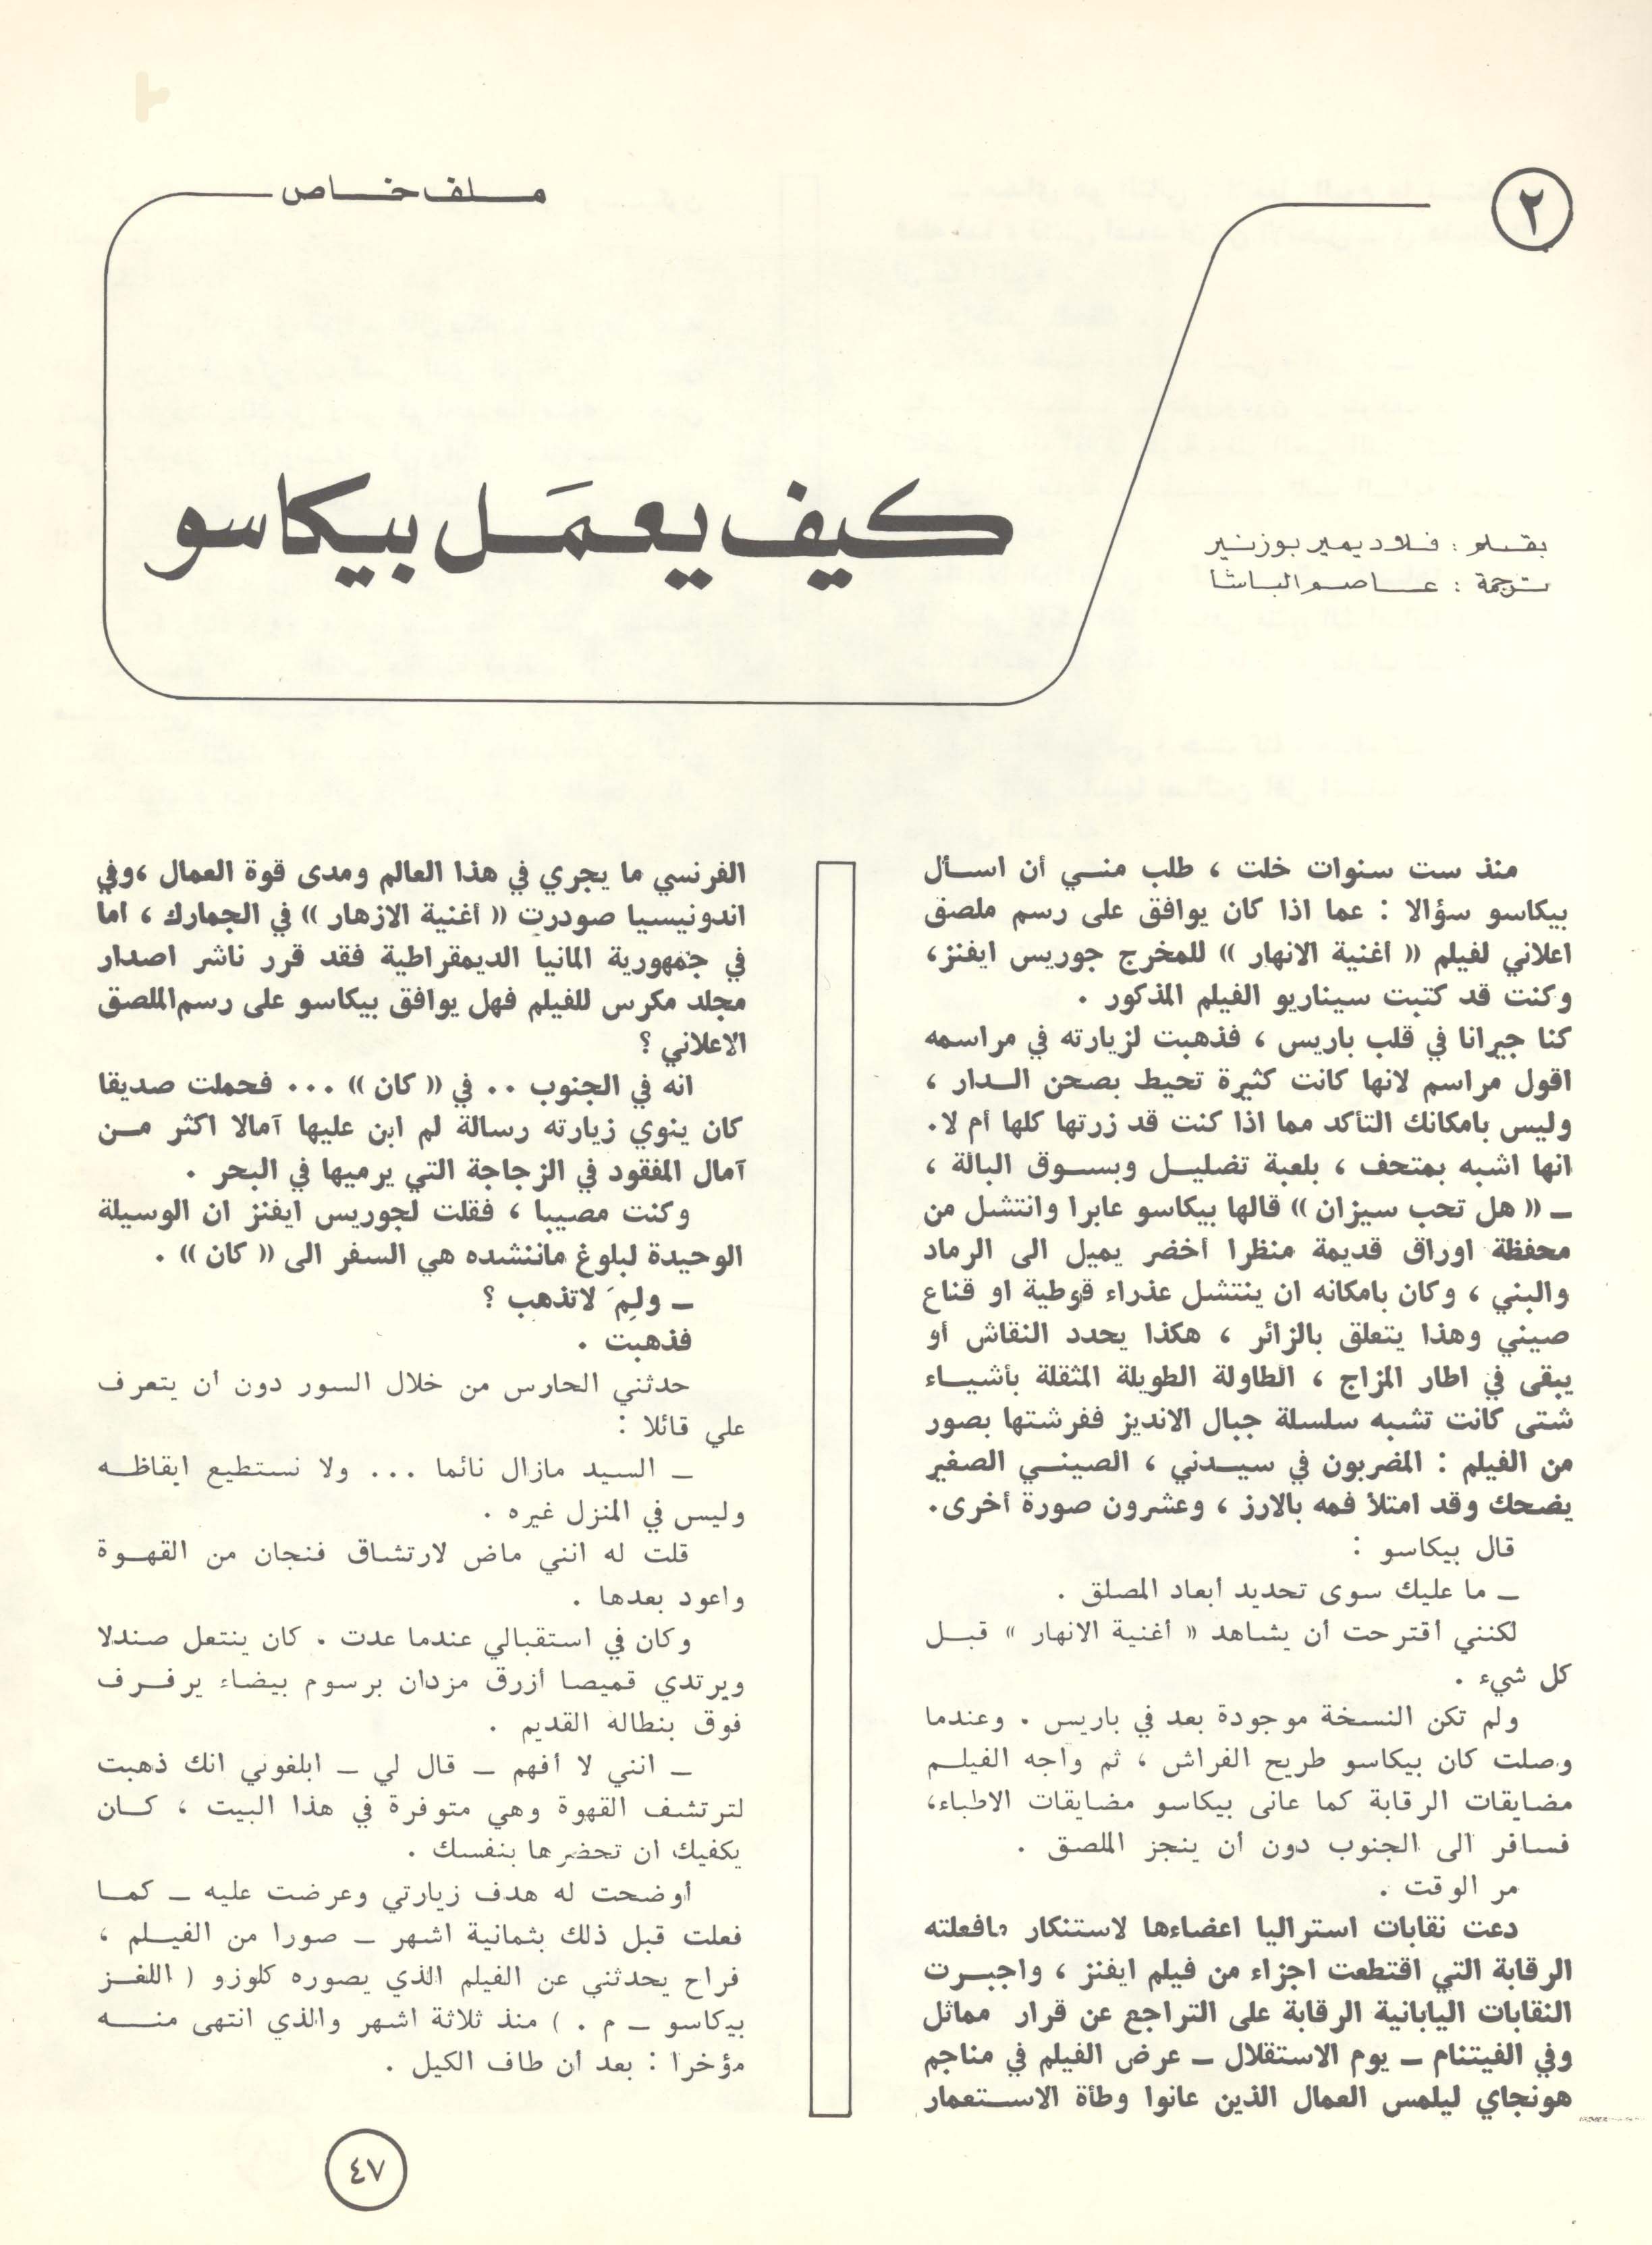 ٢
ملف خاص
كيف يعمَل بيكاسو
بقلم : فلاديمير بوزنير
ترجمة : عاصم الباشا
منذ ست سنوات خلت ، طلب مني أن اسأل
بيكاسو سؤالا : عما اذا كان يوافق على رسم ملصق
اعلاني لفيلم (( أغنية الانهار )) للمخرج جوريس ايفنز،
وكنت قد كتبت سيناريو الفيلم المذكور .
كنا جيرانا في قلب باريس ، فذهبت لزيارته في مراسمه
اقول مراسم لانها كانت كثيرة تحيط بصحن الدار ،
وليس بامكانك التأكد مما اذا كنت قد زرتها كلها أم لا.
انها اشبه بمتحف ، بلعبة تضليل وبسوق البالة ،
ـ (( هل تحب سيزان )) قالها بيكاسو عابرا وانتشل من
محفظة اوراق قديمة منظرا أخضر يميل الى الرماد
والبني ، وكان بامكانه ان ينتشل عذراء قوطية او قناع
صيني وهذا يتعلق بالزائر ، هكذا يحدد النقاش أو
يبقى في اطار المزاج ، الطاولة الطويلة المثقلة بأشياء
شتى كانت تشبه سلسلة جبال الانديز ففرشتها بصور
من الفيلم : المضربون في سيدني ، الصيني الصغير
يضحك وقد امتلأ فمه بالارز ، وعشرون صورة أخرى.
قال بيكاسو :
ـ ما عليك سوى تحديد أبعاد المصلق .
لكنني اقترحت أن يشاهد « أغنية الانهار » قبل
كل شيء .
ولم تكن النسخة موجودة بعد في باريس . وعندما
وصلت كان بيكاسو طريح الفراش ، ثم واجه الفيلم
مضايقات الرقابة كما عانى بيكاسو مضايقات الاطباء،
فسافر الى الجنوب دون أن ينجز الملصق .
مر الوقت .
دعت نقابات استراليا اعضاءها لاستنكار مافعلته
الرقابة التي اقتطعت اجزاء من فيلم ايفنز ، واجبرت
النقابات اليابانية الرقابة على التراجع عن قرار مماثل
وفي الفيتنام ـ يوم الاستقلال ـ عرض الفيلم في مناجم
هونجاي ليلمس العمال الذين عانوا وطأة الاستعمار
الفرنسي ما يجري في هذا العالم ومدى قوة العمال ،وفي
اندونيسيا صودرت (( أغنية الازهار )) في الجمارك ، اما
في جمهورية المانيا الديمقراطية فقد قرر ناشر اصدار
مجلد مكرس للفيلم فهل يوافق بيكاسو على رسم الملصق
الاعلاني ؟
انه في الجنوب .. في (( كان )) ... فحملت صديقا
كان ينوي زيارته رسالة لم ابن عليها آمالا اكثر من
آمال المفقود في الزجاجة التي يرميها في البحر .
وكنت مصيبا ، فقلت لجوريس ايفنز ان الوسيلة
الوحيدة لبلوغ ماننشده هي السفر الى (( كان )) .
ـ ولِمَ لاتذهب ؟
فذهبت .
حدثني الحارس من خلال السور دون ان يتعرف
علي قائلا :
ـ السيد مازال نائما ... ولا نستطيع ايقاظه
وليس في المنزل غيره .
قلت له انني ماض لارتشاق فنجان من القهوة
واعود بعدها .
وكان في استقبالي عندما عدت . كان ينتعل صندلا
ويرتدي قميصا أزرق مزدان برسوم بيضاء يرفرف
فوق بنطاله القديم .
ـ انني لا أفهم ـ قال لي ـ ابلغوني انك ذهبت
لترتشف القهوة وهي متوفرة في هذا البيت ، كان
يكفيك ان تحضرها بنفسك .
أوضحت له هدف زيارتي وعرضت عليه ـ كما
فعلت قبل ذلك بثمانية اشهر ـ صورا من الفيلم ،
فراح يحدثني عن الفيلم الذي يصوره كلوزو ( اللغز
بيكاسو ـ م . ) منذ ثلاثة اشهر والذي انتهى منه
مؤخرا : بعد أن طاف الكيل .
٤٧